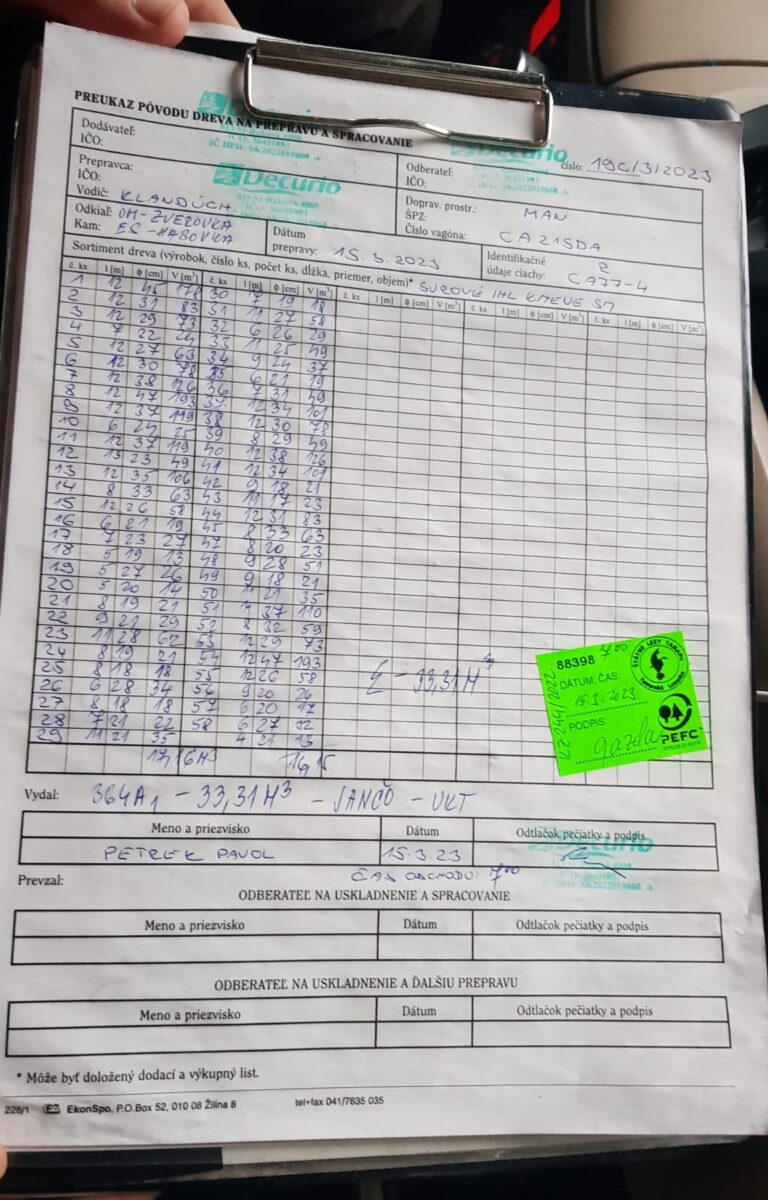 PREUKAZ PÔVODU DREVA NA PREPRAVU A SPRACOVANIE
Decurio
Dodávateľ:
IČO:
IČ DPH: SK2022019868
Odberateľ:
IČO:
Decurio
číslo: 19C/3/2023
Prepravca:
IČO:
Vodič: KLANDÚCH
Decurio
Doprav. prostr.: MAN
ŠPZ:
Číslo vagóna: CA215DA
Odkiaľ: OM-ZVEROVKA
Kam: ES-HABOVKA
Dátum
prepravy: 15.3.2023
Identifikačné
údaje ciachy: CA77-4
Sortiment dreva (výrobok, číslo ks, počet ks, dĺžka, priemer, objem)* SUROVÉ IHL KMENE SM
č. ks l [m] ϕ [cm] V [m³] č. ks l [m] ϕ [cm] V [m³] č. ks l [m] ϕ [cm] V [m³] č. ks l [m] ϕ [cm] V [m³] č. ks l [m] ϕ [cm] V [m³]
1 12 45 178 30 7 19 18
2 12 31 83 31 11 27 58
3 12 29 73 32 6 26 29
4 7 22 24 33 11 25 49
5 12 27 63 34 9 24 37
6 12 30 78 35 6 21 19
7 12 38 126 36 7 31 49
8 12 47 193 37 12 34 101
9 12 37 119 38 12 30 78
10 6 24 25 39 8 29 49
11 12 37 119 40 12 38 126
12 13 23 49 41 12 34 101
13 12 35 106 42 9 18 21
14 8 33 63 43 11 17 23
15 12 26 58 44 12 31 83
16 6 21 19 45 8 33 63
17 7 23 27 47 8 20 23
18 5 19 13 48 9 28 51
19 5 27 26 49 9 18 21
20 5 20 14 50 11 21 35
21 8 19 21 51 11 37 110
22 9 21 29 52 8 32 59
23 11 28 62 53 12 29 73
24 8 19 21 54 12 47 193
25 8 18 18 55 12 26 58
26 6 28 34 56 9 20 26
27 8 18 18 57 6 20 17
28 7 21 22 58 6 27 32
29 11 21 35 4 21 13
17,16M³ 16,15
Σ - 33,31M³
88398 7⁰⁰
DÁTUM: ČAS:
15.3.2023
PODPIS:
gazda
ŠTÁTNE LESY TANAPU
PEFC
Vydal: 364A1 - 33,31M³ - JANČO - VKT
Meno a priezvisko Dátum Odtlačok pečiatky a podpis
PETREK PAVOL 15.3.23
Decurio
Prevzal: ČAS ODCHODU: 7⁰⁰
ODBERATEĽ NA USKLADNENIE A SPRACOVANIE
Meno a priezvisko Dátum Odtlačok pečiatky a podpis
ODBERATEĽ NA USKLADNENIE A ĎALŠIU PREPRAVU
Meno a priezvisko Dátum Odtlačok pečiatky a podpis
* Môže byť doložený dodací a výkupný list.
228/1 ES EkonSpo, P.O.Box 52, 010 08 Žilina 8 tel+fax 041/7635 035